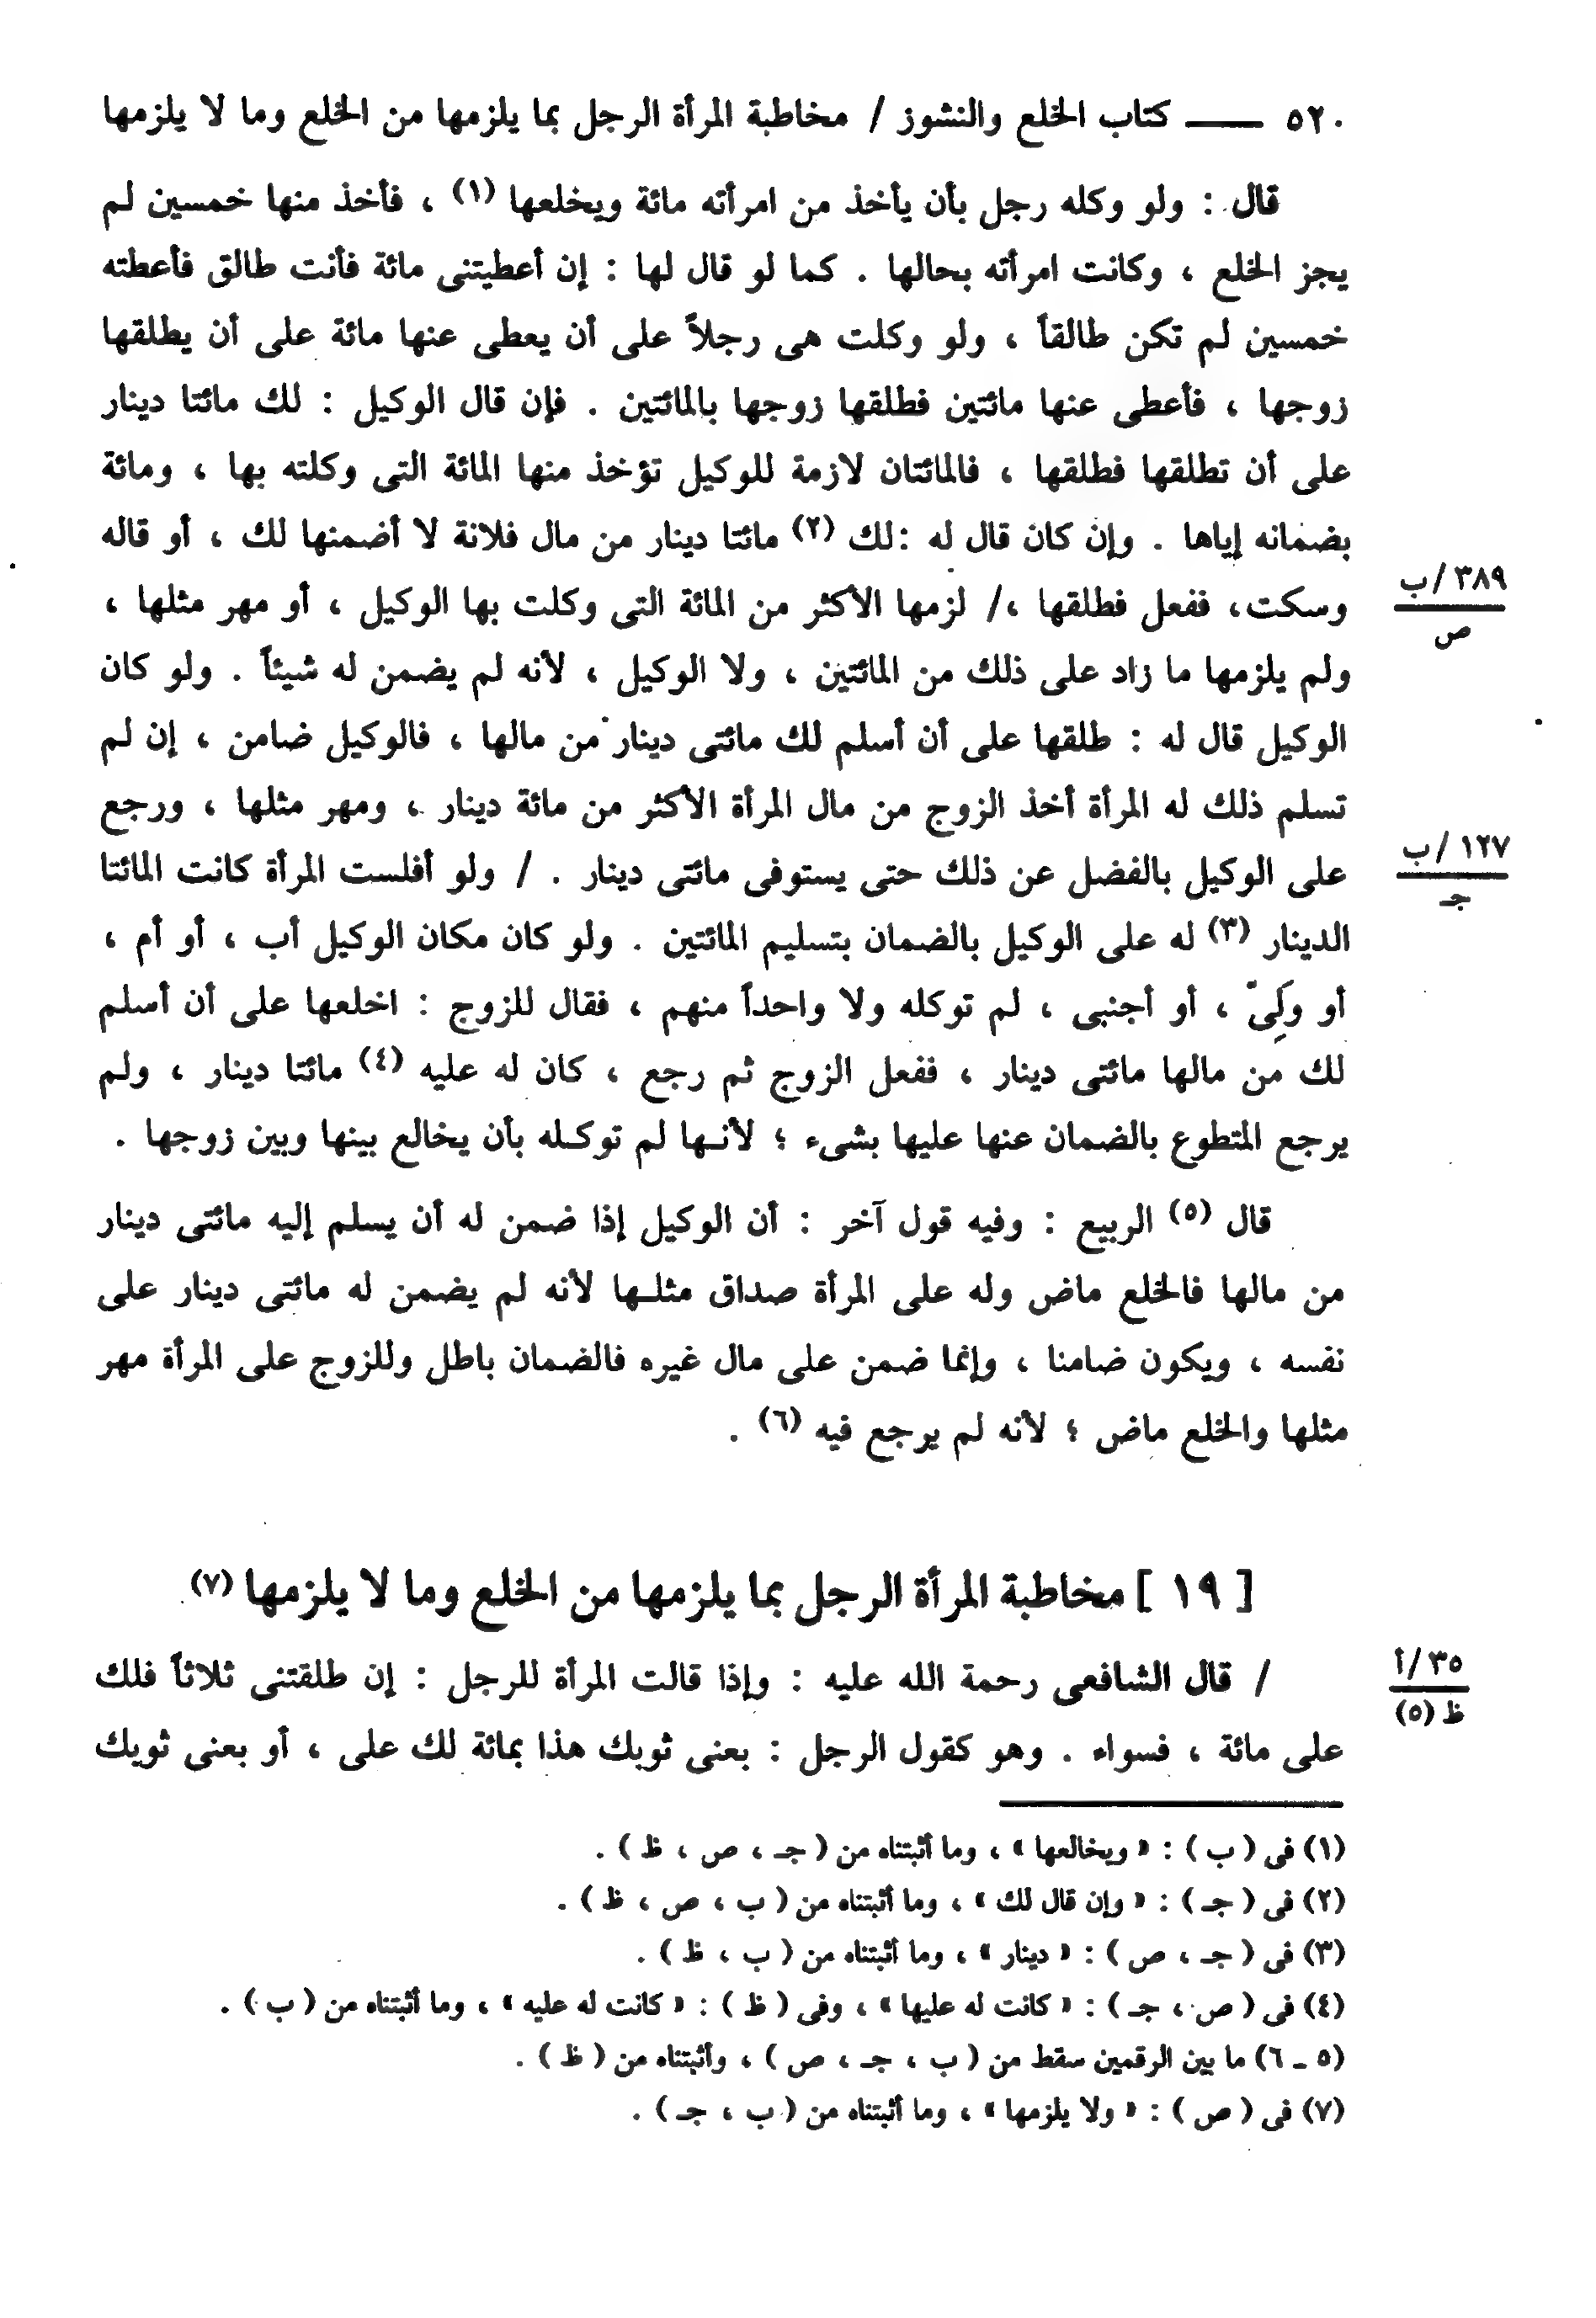 ٥٢٠ ــــــ كتاب الخلع والنشوز / مخاطبة المرأة الرجل بما يلزمها من الخلع وما لا يلزمها
قال : ولو وكله رجل بأن يأخذ من امرأته مائة ويخلعها (١) ، فأخذ منها خمسين لم
يجز الخلع ، وكانت امرأته بحالها . كما لو قال لها : إن أعطيتنى مائة فأنت طالق فأعطته
خمسين لم تكن طالقاً ، ولو وكلت هى رجلاً على أن يعطى عنها مائة على أن يطلقها
زوجها ، فأعطى عنها مائتين فطلقها زوجها بالمائتين . فإن قال الوكيل : لك مائتا دينار
على أن تطلقها فطلقها ، فالمائتان لازمة للوكيل تؤخذ منها المائة التى وكلته بها ، ومائة
بضمانه إياها . وإن كان قال له :لك (٢) مائتا دينار من مال فلانة لا أضمنها لك ، أو قاله
وسكت، ففعل فطلقها ،/ لزمها الأكثر من المائة التى وكلت بها الوكيل ، أو مهر مثلها ،
٣٨٩/ب
ص
ولم يلزمها ما زاد على ذلك من المائتين ، ولا الوكيل ، لأنه لم يضمن له شيئاً . ولو كان
الوكيل قال له : طلقها على أن أسلم لك مائتى دينار من مالها ، فالوكيل ضامن ، إن لم
تسلم ذلك له المرأة أخذ الزوج من مال المرأة الأكثر من مائة دينار ، ومهر مثلها ، ورجع
على الوكيل بالفضل عن ذلك حتى يستوفى مائتى دينار . / ولو أفلست المرأة كانت المائتا
١٢٧/ب
جـ
الدينار (٣) له على الوكيل بالضمان بتسليم المائتين . ولو كان مكان الوكيل أب ، أو أم ،
أو ولَِىّ ، أو أجنبى ، لم توكله ولا واحداً منهم ، فقال للزوج : اخلعها على أن أسلم
لك من مالها مائتى دينار ، ففعل الزوج ثم رجع ، كان له عليه (٤) مائتا دينار ، ولم
يرجع المتطوع بالضمان عنها عليها بشىء ؛ لأنـها لم توكـله بأن يخالع بينها وبين زوجها .
قال (٥) الربيع : وفيه قول آخر : أن الوكيل إذا ضمن له أن يسلم إليه مائتى دينار
من مالها فالخلع ماض وله على المرأة صداق مثلـها لأنه لم يضمن له مائتى دينار على
نفسه ، ويكون ضامنا ، وإنما ضمن على مال غيره فالضمان باطل وللزوج على المرأة مهر
مثلها والخلع ماض ؛ لأنه لم يرجع فيه (٦) .
[ ١٩ ] مخاطبة المرأة الرجل بما يلزمها من الخلع وما لا يلزمها (٧)
/ قال الشافعى رحمة الله عليه : وإذا قالت المرأة للرجل : إن طلقتنى ثلاثاً فلك
٣٥/أ
ظ (٥)
على مائة ، فسواء . وهو كقول الرجل : بعنى ثوبك هذا بمائة لك على ، أو بعنى ثوبك
(١) فى ( ب ) : « ويخالعها » ، وما أثبتناه من ( جـ ، ص ، ظ ) .
(٢) فى ( جـ ) : « وإن قال لك » ، وما أثبتناه من ( ب ، ص ، ظ ) .
(٣) فى ( جـ ، ص ) : « دينار » ، وما أثبتناه من ( ب ، ظ ) .
(٤) فى ( ص ، جـ ) : « كانت له عليها » ، وفى ( ظ ) : « كانت له عليه » ، وما أثبتناه من ( ب ) .
(٥ ـ ٦) ما بين الرقمين سقط من ( ب ، جـ ، ص ) ، وأثبتناه من ( ظ ) .
(٧) فى ( ص ) : « ولا يلزمها » ، وما أثبتناه من ( ب ، جـ ) .